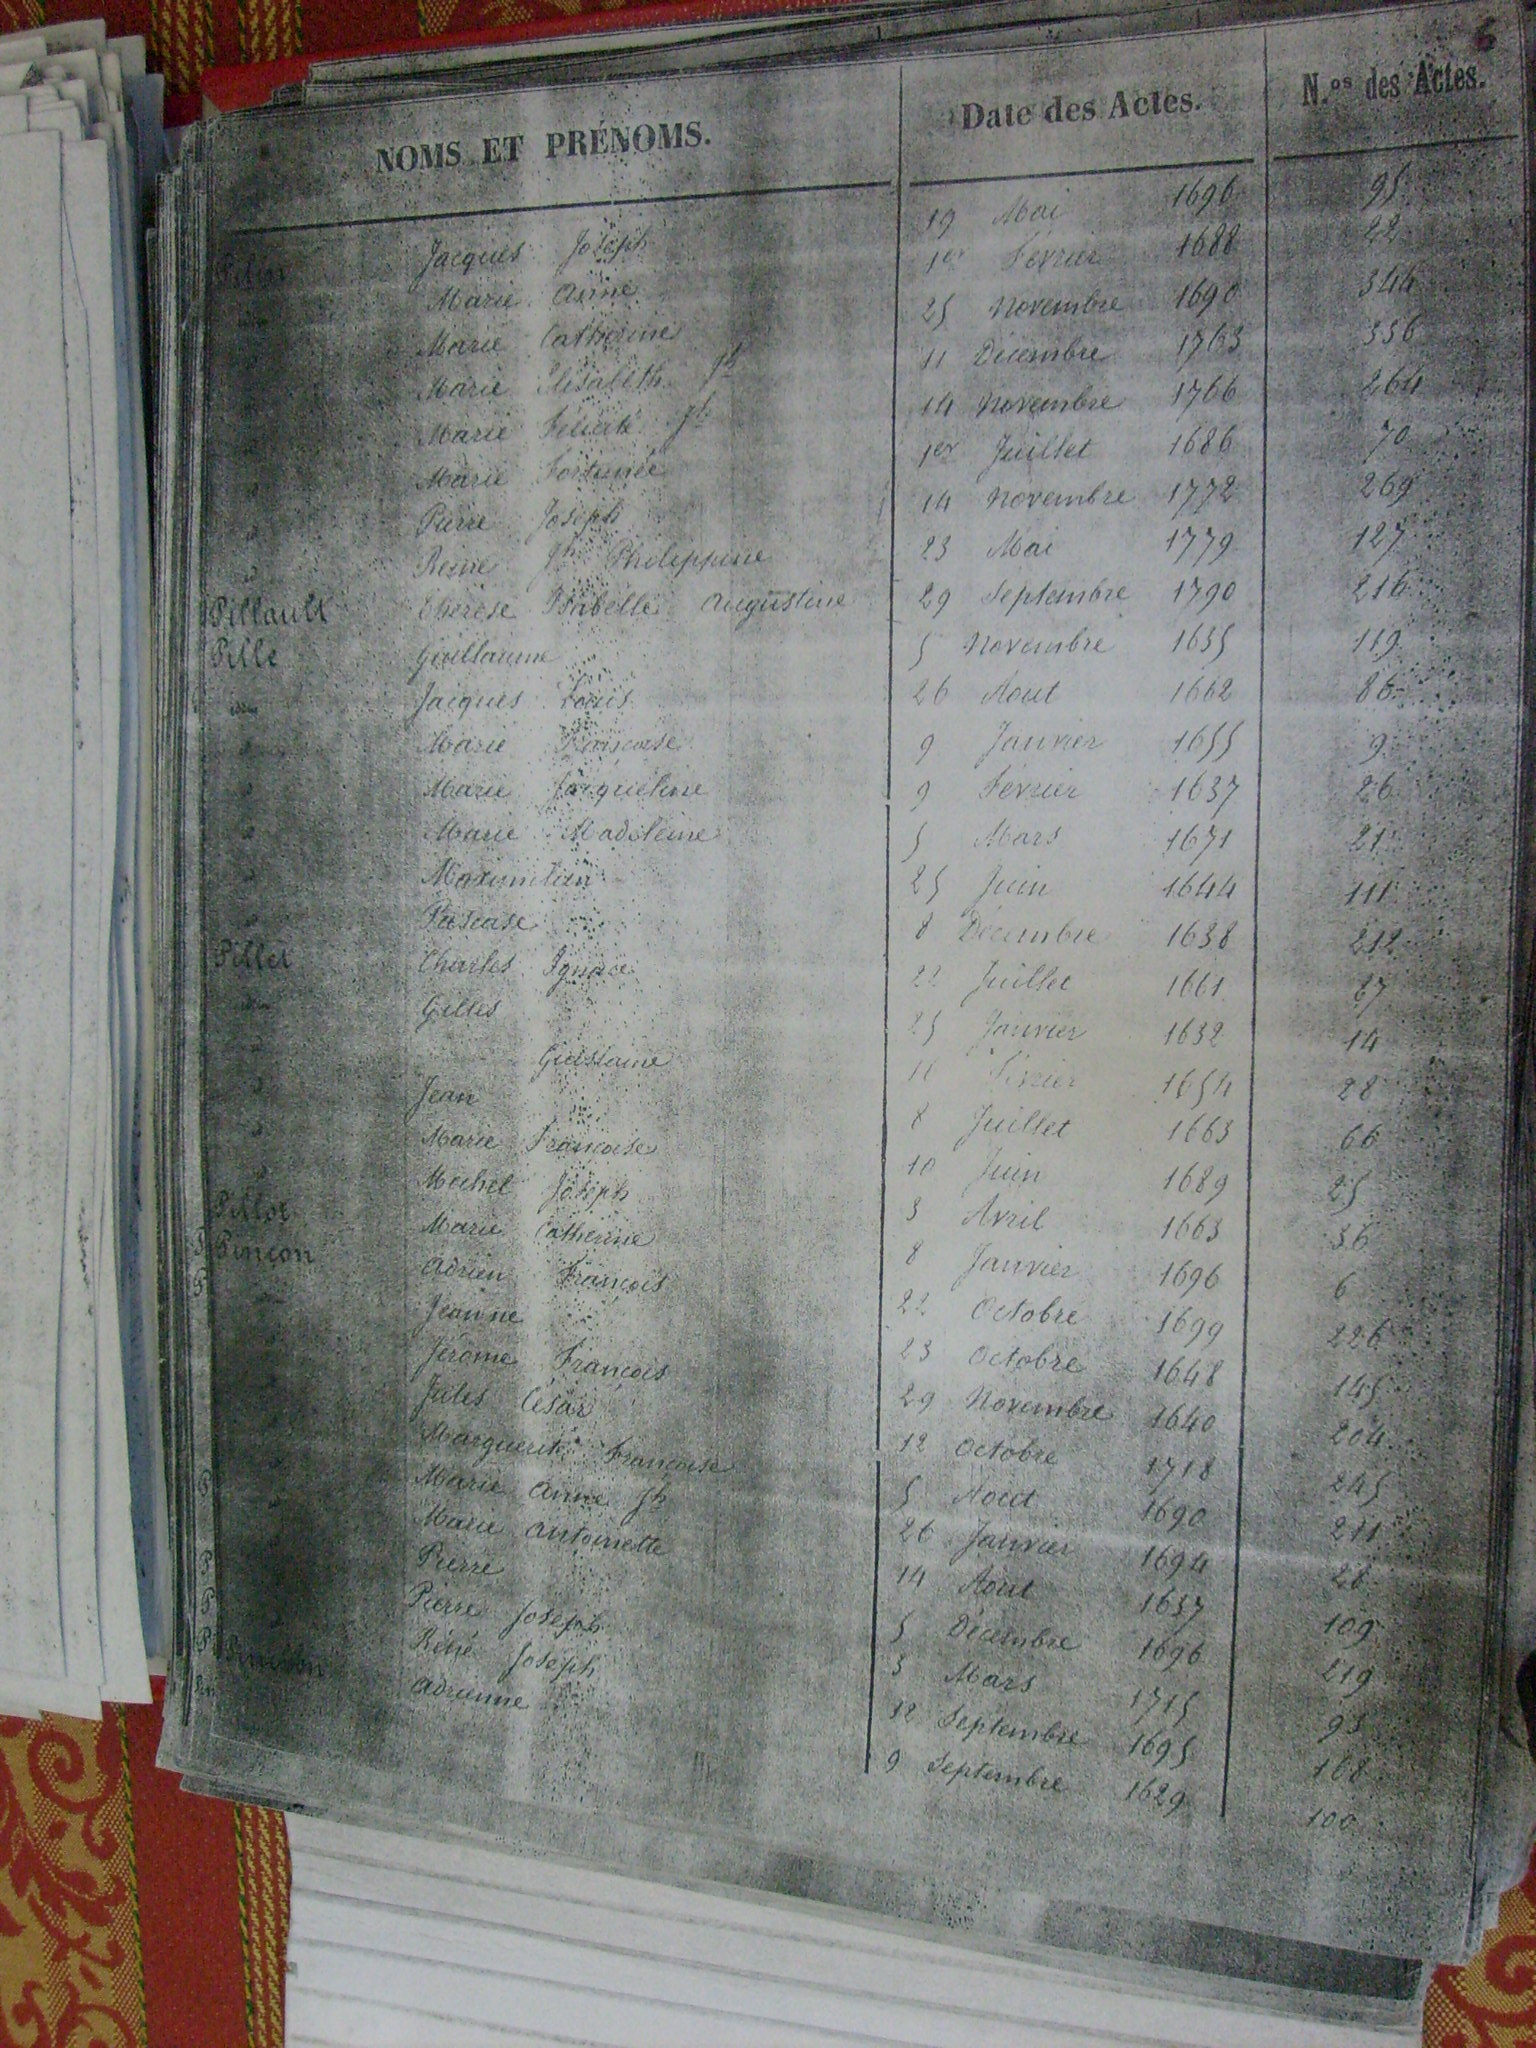 6
NOMS ET PRÉNOMS. Date des Actes. N.os des Actes.
Jacques Joseph 19 Mai 1696 95
Marie Anne 1er Février 1688 22
Marie Catherine 25 Novembre 1690 344
Marie Elisabeth Jh 11 Décembre 1763 336
Marie Félicité Jh 14 Novembre 1766 264
Marie Fortunée 1er Juillet 1686 70
Pierre Joseph 14 Novembre 1772 269
Reine Jh Philippine 23 Mai 1779 127
Pillault Thérèse Isabelle Augustine 29 Septembre 1790 216
Pille Guillaume 5 Novembre 1635 119
Jacques Louis 26 Aout 1662 86
Marie Françoise 9 Janvier 1655 9
Marie Jacqueline 9 Février 1637 26
Marie Madeleine 5 Mars 1671 21
Maximilien 25 Juin 1644 111
Pascase 8 Décembre 1638 212
Pillet Charles Ignace 22 Juillet 1661 67
Gilles 25 Janvier 1632 14
Guislaine Février 1654 28
Jean 8 Juillet 1663 66
Marie Françoise 10 Juin 1689 25
Michel Joseph 3 Avril 1663 36
Pillot Marie Catherine 8 Janvier 1696 6
Pinçon Adrien François 22 Octobre 1699 226
Jeanne 23 Octobre 1648 145
Jérome François 29 Novembre 1640 204
Jules César 12 Octobre 1718 245
Marguerite Françoise 5 Aout 1690 211
Marie Anne Jh 26 Janvier 1694 28
Marie Antoinette 14 Aout 1637 109
Pierre 5 Décembre 1696 219
Pierre Joseph 3 Mars 1715 93
Réné Joseph 12 Septembre 1695 168
Adrienne 9 Septembre 1629 100